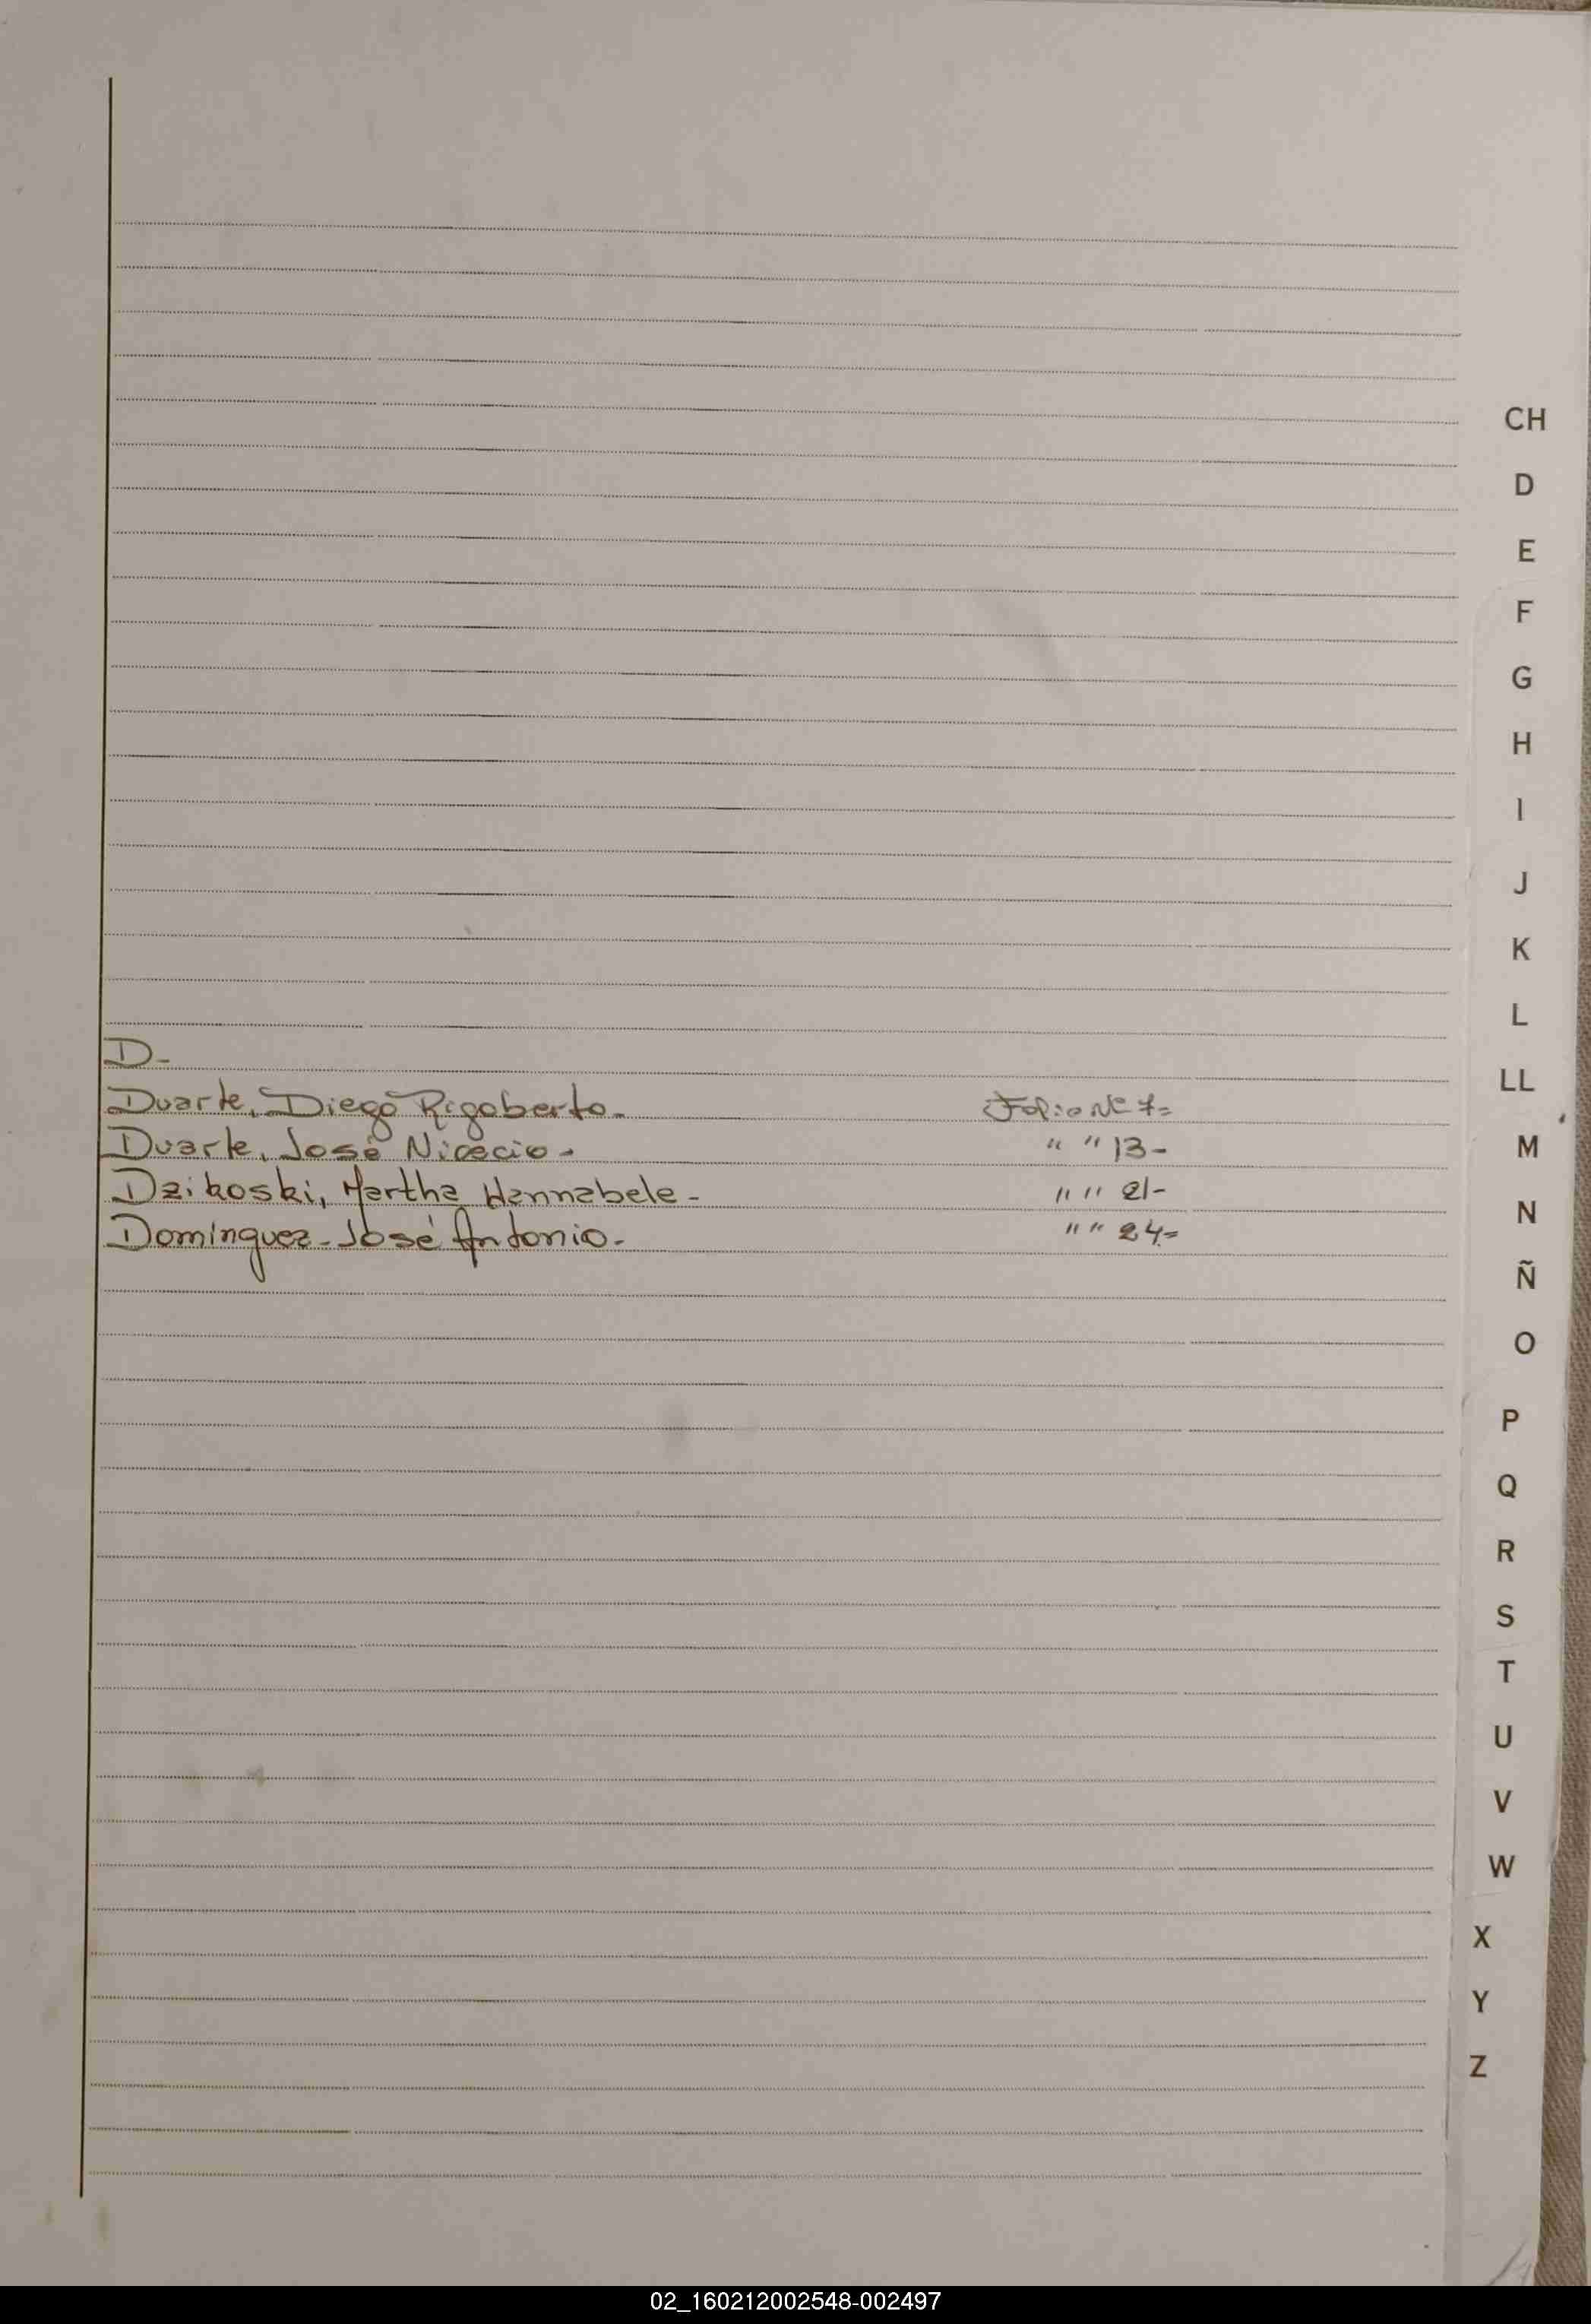 CH
D
E
F
G
H
I
J
K
L
D-
LL
Duarte, Diego Rigoberto. Folio Nº 7=
Duarte, José Nicecio- " " 13-
M
Dzikoski, Martha Hannabele- " " 21-
N
Domínguez-José Antonio- " " 24=
Ñ
O
P
Q
R
S
T
U
V
W
X
Y
Z
02_160212002548-002497